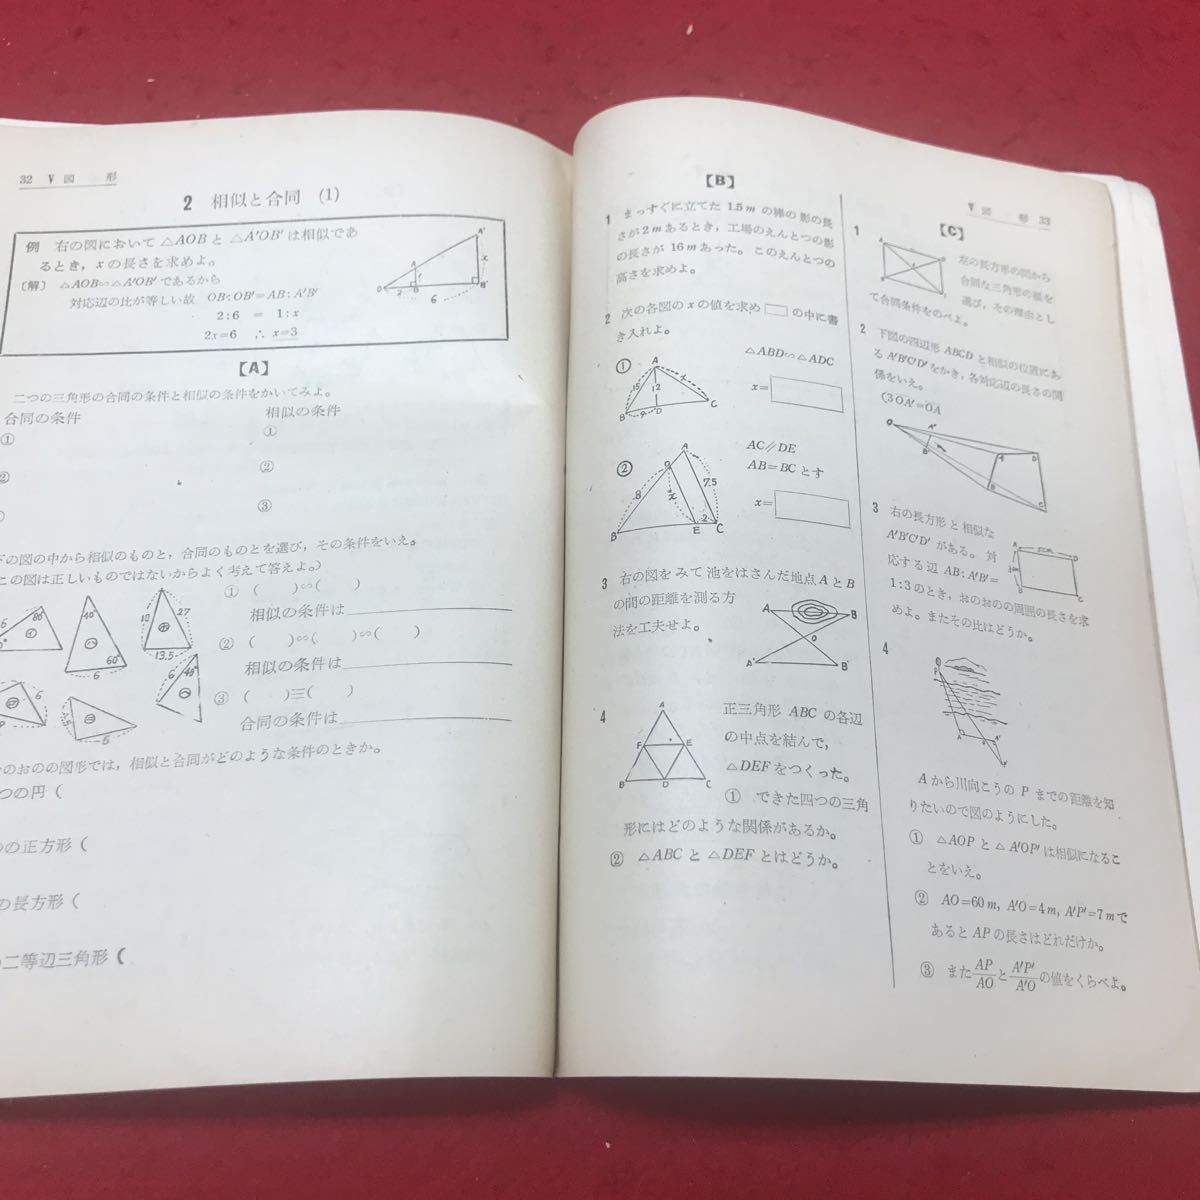 32 V 図 形
2 相似と合同 (1)
例 右の図において △AOB と △A'OB' は相似であ
るとき，x の長さを求めよ。
〔解〕 △AOB∽△A'OB' であるから
対応辺の比が等しい故 OB:OB'=AB:A'B'
2:6 = 1:x
2x=6 ∴ x=3
A'
A
1
x
O
2
B
B'
6
【A】
二つの三角形の合同の条件と相似の条件をかいてみよ。
合同の条件 相似の条件
① ①
② ②
③
下の図の中から相似のものと，合同のものとを選び，その条件をいえ。
この図は正しいものではないからよく考えて答えよ。)
① ( )∽( )
相似の条件は
② ( )∽( )∽( )
相似の条件は
③ ( )≡( )
合同の条件は
6
80°
40°
60°
6
18
27
13.5
6
40°
6
6
のおのの図形では，相似と合同がどのような条件のときか。
つの円 (
の正方形 (
の長方形 (
二等辺三角形 (
【B】
1 まっすぐに立てた 1.5m の棒の影の長
さが 2m あるとき，工場のえんとつの影
の長さが 16m あった。このえんとつの
高さを求めよ。
2 次の各図の x の値を求め □ の中に書
き入れよ。
① △ABD∽△ADC
x=
A
15
12
x
B
9
D
C
② AC//DE
AB=BC とす
x=
A
D
8
x
7.5
B
E
2
C
3 右の図をみて池をはさんだ地点 A と B
の間の距離を測る方
法を工夫せよ。
A
B
O
A'
B'
4 正三角形 ABC の各辺
の中点を結んで，
△DEF をつくった。
① できた四つの三角
形にはどのような関係があるか。
② △ABC と △DEF とはどうか。
A
F
E
B
D
C
V 図 形 33
【C】
1 左の長方形の図から
合同な三角形の組を
選び，その理由とし
て合同条件をのべよ。
2 下図の四辺形 ABCD と相似の位置にあ
る A'B'C'D' をかき，各対応辺の長さの関
係をいえ。
(3OA'=OA
O
A'
B'
A
D
B
C
3 右の長方形と相似な
A'B'C'D' がある。対
応する辺 AB:A'B'=
1:3 のとき，おのおのの周囲の長さを求
めよ。またその比はどうか。
A
D
B
C
4
P
A
P'
A から川向こうの P までの距離を知
りたいので図のようにした。
① △AOP と △A'OP' は相似になるこ
とをいえ。
② AO=60m, A'O=4m, A'P'=7m で
あると AP の長さはどれだけか。
③ また AP/AO と A'P'/A'O の値をくらべよ。